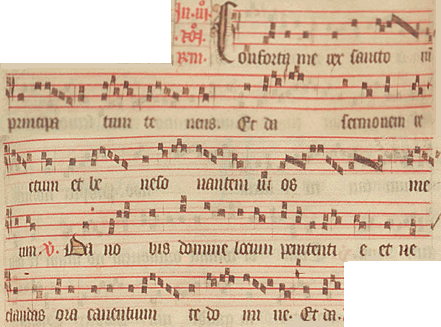 Conforta me rex sancto rũ
principa tum te nens. Et da sermonem re
ctum et be neso nantem in os me
um. V. Da no bis domine locum penitenti e et ne
claudas ora canentium te do mi ne. Et da.